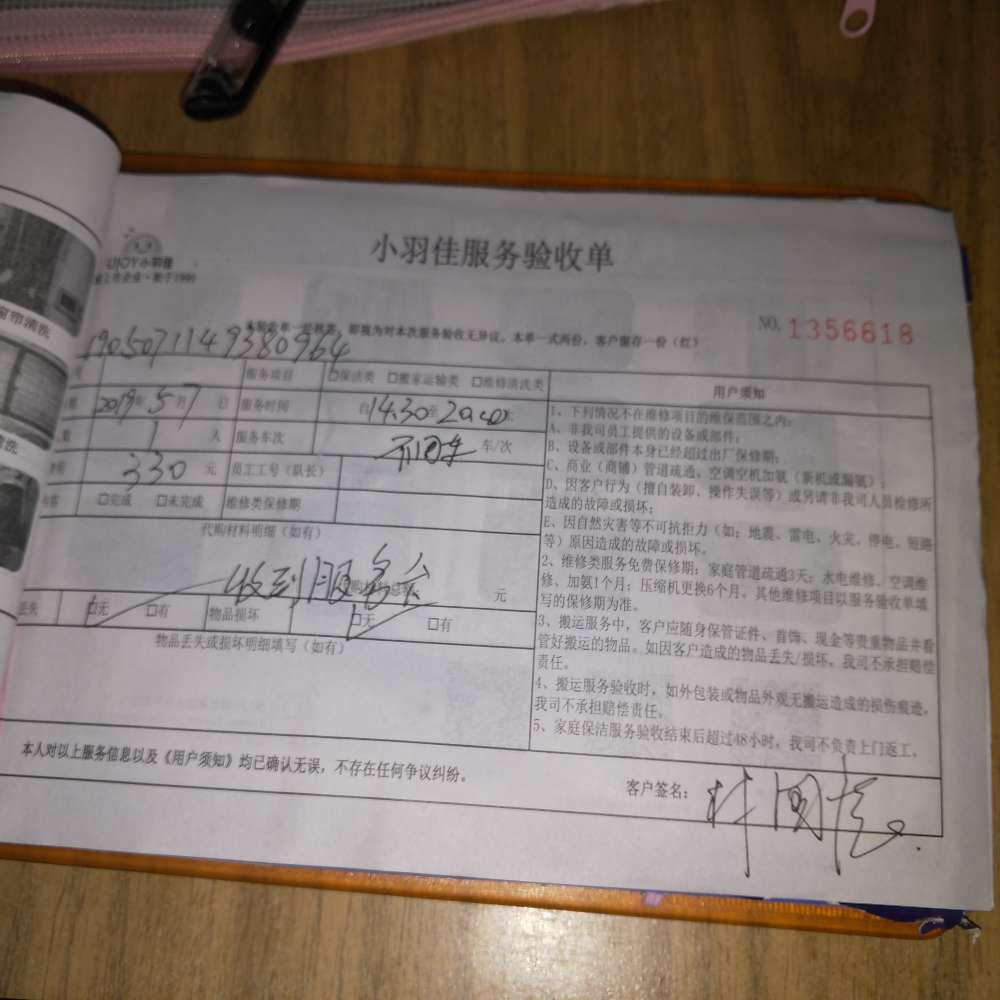 窗帘清洗
清洗
小羽佳服务验收单
IJOY小羽佳
上市企业·始于1999
本验收单一经签署，即视为对本次服务验收无异议。本单一式两份，客户留存一份（红）
NO. 1356618
1905071149380964
服务项目 □保洁类 □搬家运输类 □维修清洗类
用户须知
2019年5月7日 服务时间 自14.30至20.00
1 人 服务车次 车/次
330 元 员工工号（队长）
□完成 □未完成 维修类保修期
代购材料明细（如有）
收到服务
元
丢失 □无 □有 物品损坏 □无 □有
物品丢失或损坏明细填写（如有）
1、下列情况不在维修项目的维保范围之内：
A、非我司员工提供的设备或部件；
B、设备或部件本身已经超过出厂保修期；
C、商业（商铺）管道疏通、空调空机加氨（新机或漏氨）；
D、因客户行为（擅自装卸、操作失误等）或另请非我司人员检修所
造成的故障或损坏；
E、因自然灾害等不可抗拒力（如：地震、雷电、火灾、停电、短路
等）原因造成的故障或损坏。
2、维修类服务免费保修期：家庭管道疏通3天；水电维修、空调维
修、加氨1个月；压缩机更换6个月。其他维修项目以服务验收单填
写的保修期为准。
3、搬运服务中，客户应随身保管证件、首饰、现金等贵重物品并看
管好搬运的物品。如因客户造成的物品丢失/损坏，我司不承担赔偿
责任。
4、搬运服务验收时，如外包装或物品外观无搬运造成的损伤痕迹，
我司不承担赔偿责任。
5、家庭保洁服务验收结束后超过48小时，我司不负责上门返工。
本人对以上服务信息以及《用户须知》均已确认无误，不存在任何争议纠纷。
客户签名：